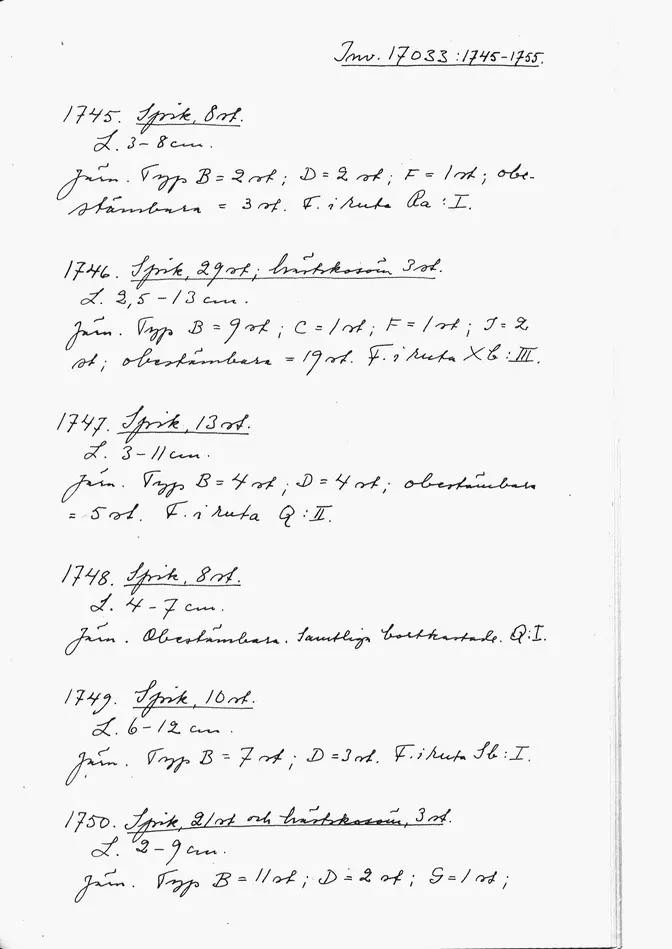 Inv. 17033:1745-1755.
1745. Spik, 8 st.
L. 3-8 cm.
Järn. Typ B = 2 st; D = 2 st; F = 1 st; obe-
stämbara = 3 st. F. i ruta Ra:I.
1746. Spik, 29 st; hästskosöm 3 st.
L. 2,5-13 cm.
Järn. Typ B = 9 st; C = 1 st; F = 1 st; I = 2
st; obestämbara = 19 st. F. i ruta Xb:III.
1747. Spik, 13 st.
L. 3-11 cm.
Järn. Typ B = 4 st; D = 4 st; obestämbara
= 5 st. F. i ruta Q:II.
1748. Spik, 8 st.
L. 4-7 cm.
Järn. Obestämbara. Samtliga bortkastade. Q:I.
1749. Spik, 10 st.
L. 6-12 cm.
Järn. Typ B = 7 st; D = 3 st. F. i ruta Sb:I.
1750. Spik, 21 st och hästskosöm, 3 st.
L. 2-9 cm.
Järn. Typ B = 11 st; D = 2 st; G = 1 st;